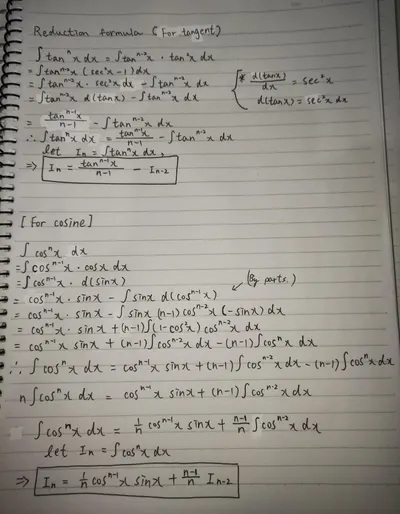 Reduction formula [For tangent]
∫tanⁿx dx = ∫tanⁿ⁻²x · tan²x dx
= ∫tanⁿ⁻²x (sec²x − 1) dx
= ∫tanⁿ⁻²x · sec²x dx − ∫tanⁿ⁻²x dx
= ∫tanⁿ⁻²x d(tanx) − ∫tanⁿ⁻²x dx
[* d(tanx)/dx = sec²x
d(tanx) = sec²x dx
= tanⁿ⁻¹x/(n−1) − ∫tanⁿ⁻²x dx
∴ ∫tanⁿx dx = tanⁿ⁻¹x/(n−1) − ∫tanⁿ⁻²x dx
let In = ∫tanⁿx dx,
⇒ In = tanⁿ⁻¹x/(n−1) − In-2
[For cosine]
∫cosⁿx dx
= ∫cosⁿ⁻¹x · cosx dx
= ∫cosⁿ⁻¹x · d(sinx)
= cosⁿ⁻¹x · sinx − ∫sinx d(cosⁿ⁻¹x) (By parts.)
= cosⁿ⁻¹x · sinx − ∫sinx (n−1) cosⁿ⁻²x (−sinx) dx
= cosⁿ⁻¹x · sinx + (n−1)∫(1−cos²x) cosⁿ⁻²x dx
= cosⁿ⁻¹x sinx + (n−1)∫cosⁿ⁻²x dx − (n−1)∫cosⁿx dx
∴ ∫cosⁿx dx = cosⁿ⁻¹x sinx + (n−1)∫cosⁿ⁻²x dx − (n−1)∫cosⁿx dx
n∫cosⁿx dx = cosⁿ⁻¹x sinx + (n−1)∫cosⁿ⁻²x dx
∫cosⁿx dx = 1/n cosⁿ⁻¹x sinx + (n−1)/n ∫cosⁿ⁻²x dx
let In = ∫cosⁿx dx
⇒ In = 1/n cosⁿ⁻¹x sinx + (n−1)/n In-2